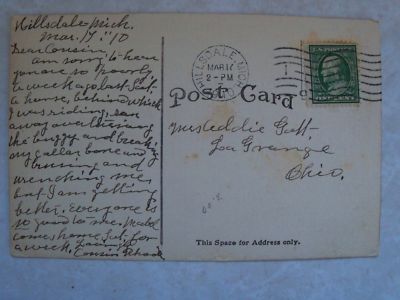 Hillsdale Mich.
Mar. 17. '10
Dear Cousin,
am sorry to hear
you are so poorly
a week ago last Sat.
a horse, behind which
I was riding, ran
away overturning
the buggy and break-
my collar bone and
bruising and
wrenching me,
but I am getting
better. Everyone is
so good to me. Mabel
comes home Sat. for
a week.
Cousin
HILLSDALE, MICH.
MAR 17
2-PM
1910
1
Post Card
ONE CENT
Miss Eddie
La Grange
Ohio.
This Space for Address only.